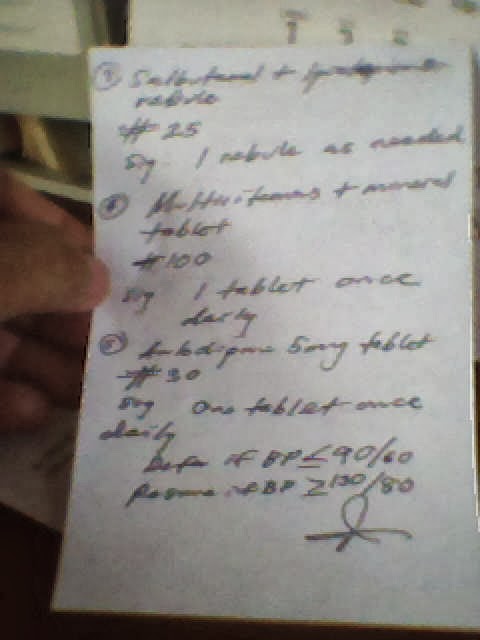 ③ Salbutamol + Ipratropium
nebule
# 25
Sig 1 nebule as needed
④ Multivitamins + mineral
tablet
#100
Sig 1 tablet once
daily
⑤ Amlodipine 5mg tablet
# 30
Sig One tablet once
daily
Defer if BP ≤ 90/60
Resume if BP ≥ 130/80